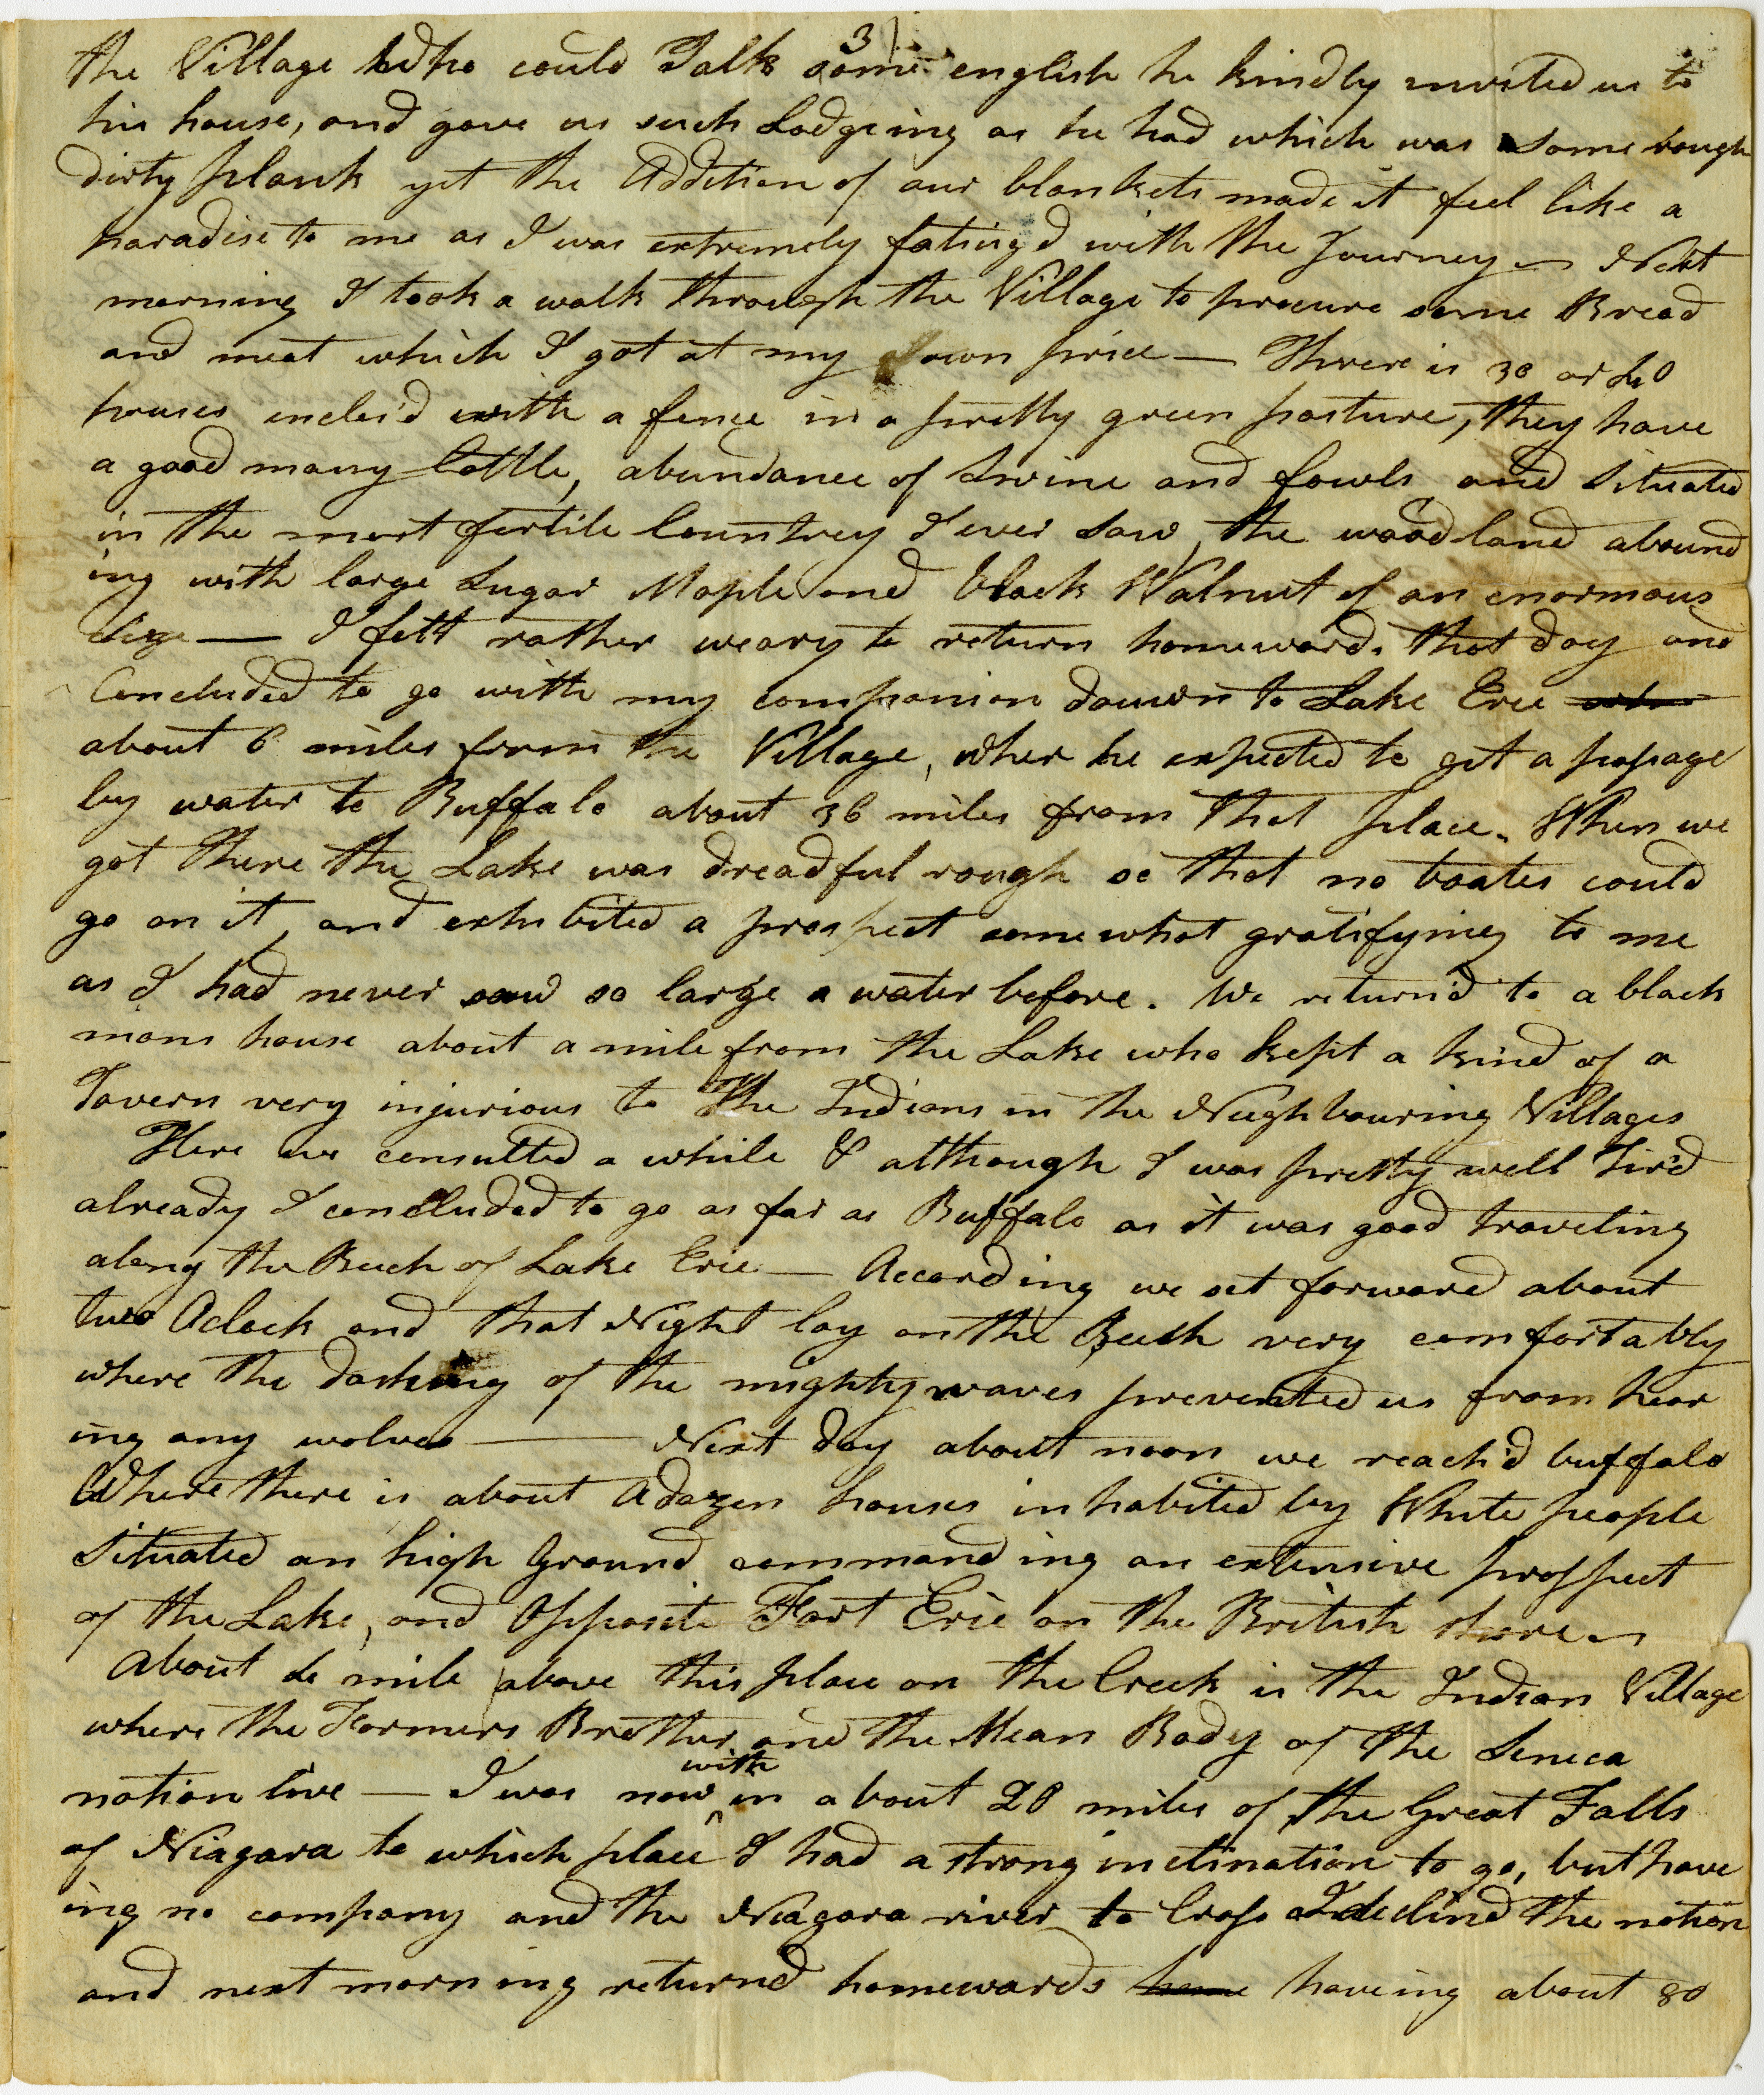 3
the Village who could Talk some english he kindly invited us to
his house, and gave us such Lodgeing as he had which was some rough
dirty plank yet the Addition of our blankets made it feel like a
paradise to me as I was extremely fatiug'd with the Journey — Next
morning I took a walk through the Village to procure some Bread
and meat which I got at my own price — There is 30 or 40
houses enclos'd with a fence in a pretty green pasture, they have
a good many Cattle, abundance of Swine and fowls and Situated
in the most fertile Countrey I ever saw, the wood land abound
ing with large Sugar Maple and black Walnut of an enormous
Size — I felt rather weary to return homeward. that day and
Concluded to go with my companion down to Lake Erie
about 6 miles from the Village, wher he expected to get a passage
by water to Buffalo about 36 miles from that place. When we
got there the Lake was dreadful rough so that no boates could
go on it, and exhibited a prospect somewhat gratifying to me
as I had never saw so large a water before. We return'd to a black
mans house about a mile from the Lake who kept a kind of a
Tavern very injurious to the Indians in the Neighbouring Villages
Here we consulted a while & although I was pretty well Tir'd
already I concluded to go as far as Buffalo as it was good traveling
along the Beech of Lake Erie — According we set forward about
two Oclock and that Night lay on the Beech very comfortably
where the dashing of the mighty waves prevented us from hear
ing any wolves — Next day about noon we reach'd buffalo
Where there is about a dozen houses inhabited by White people
Situated on high Ground commanding an extensive prospect
of the Lake, and Opposite Fort Erie on the British shore —
About mile above this place on the Creek is the Indian Village
where the Farmers Brother and the Mean Body of the Seneca
nation live — I was now with in about 20 miles of the Great Falls
of Niagara to which place I had a strong inclination to go, but have
ing no company and the Niagara river to Cross I declin'd the notion
and next morning return'd homewards haveing about 80